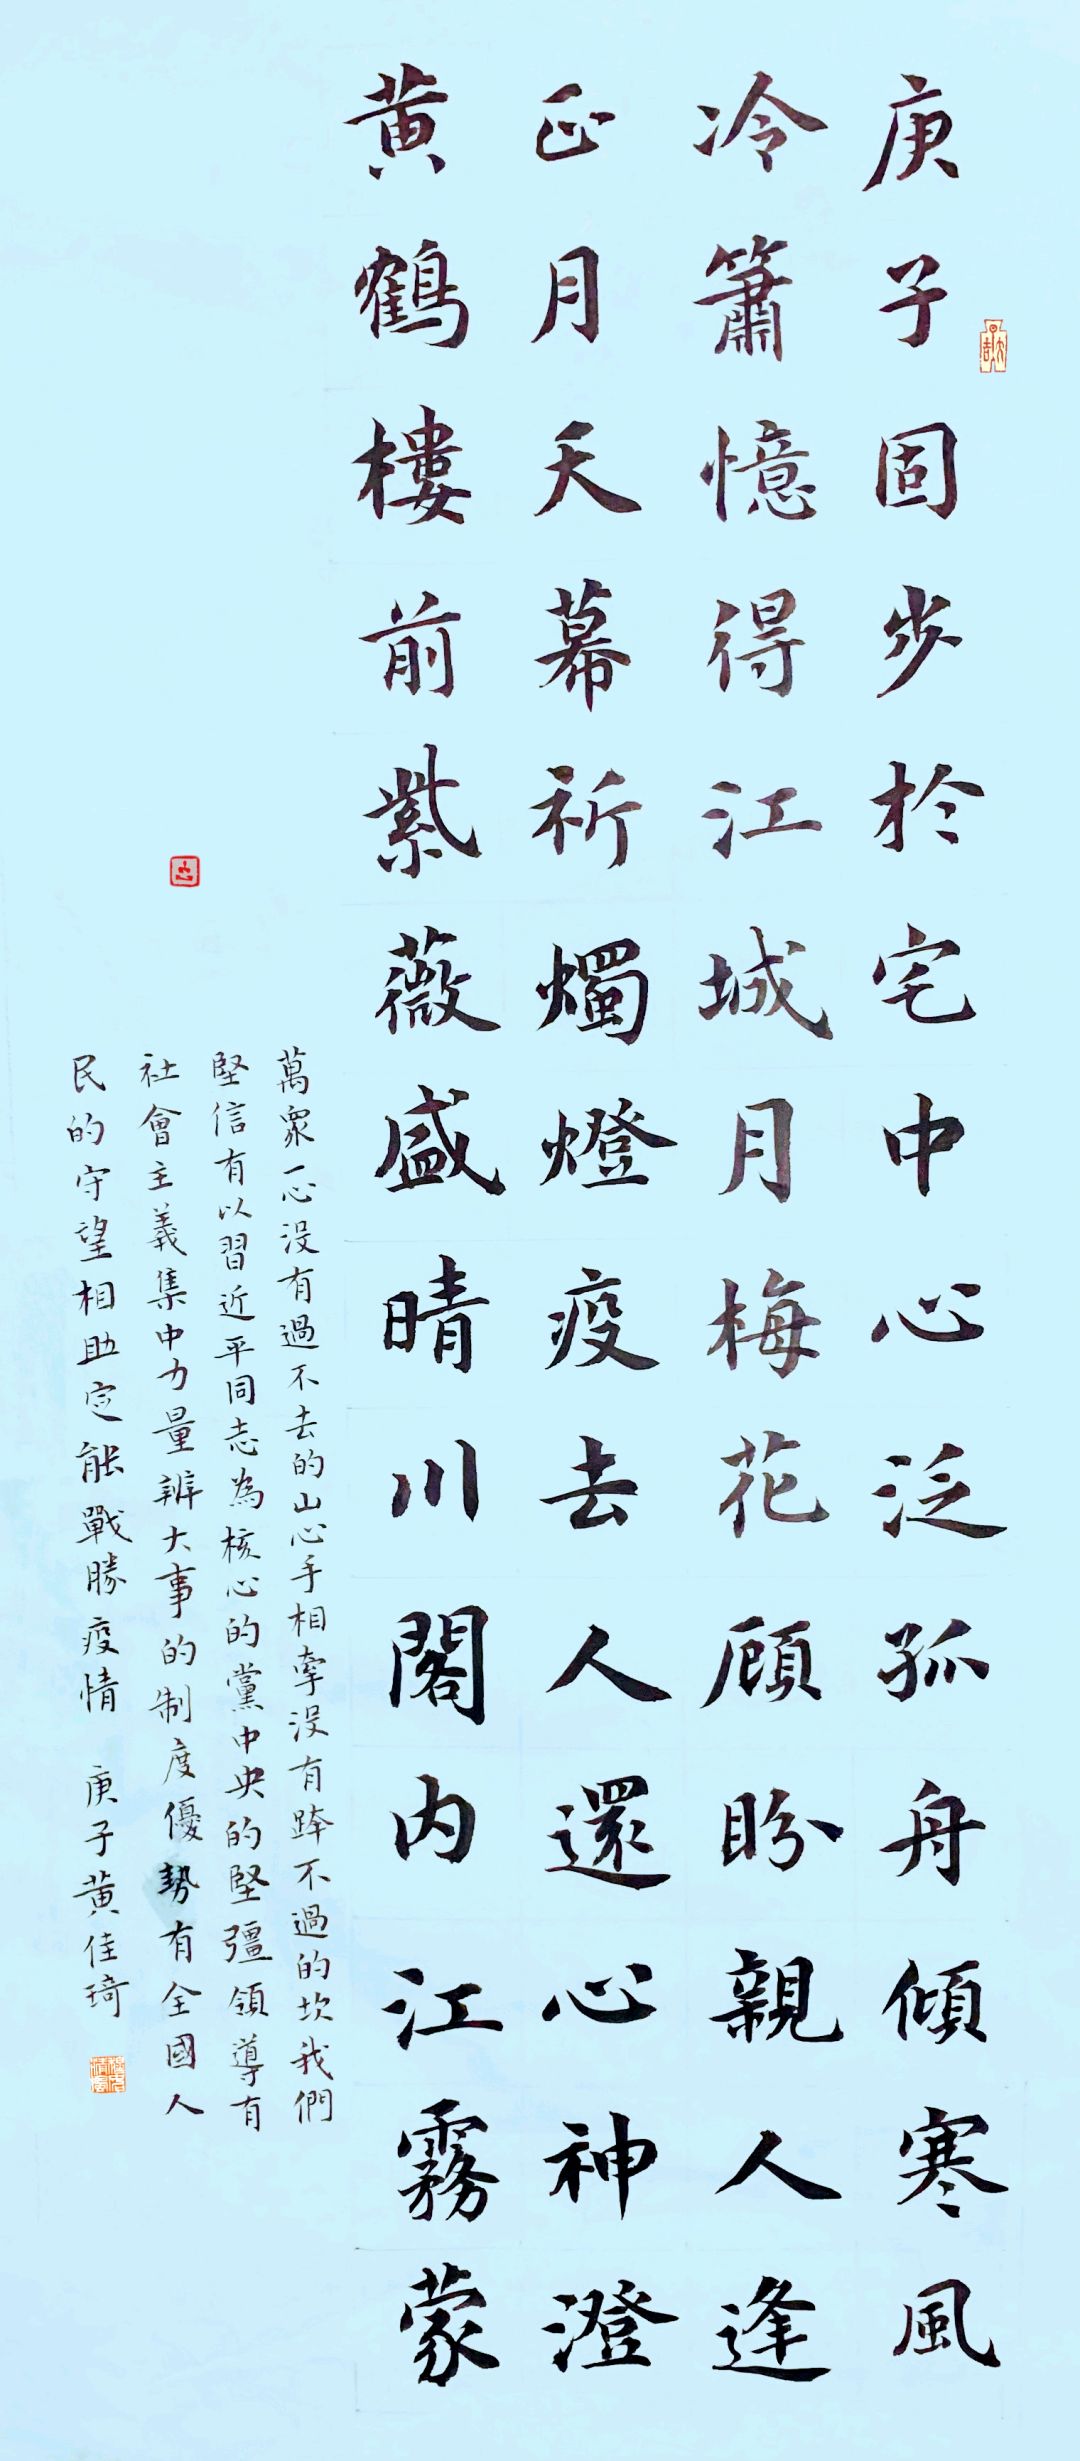 庚子固步於宅中心泛孤舟傾寒風
冷簫憶得江城月梅花顧盼親人逢
正月天幕祈燭燈疫去人還心神澄
黃鶴樓前紫薇盛晴川閣內江霧蒙
萬眾一心沒有過不去的山心手相牽沒有跨不過的坎我們
堅信有以習近平同志為核心的黨中央的堅彊領導有
社會主義集中力量辦大事的制度優勢有全國人
民的守望相助定能戰勝疫情 庚子黃佳琦